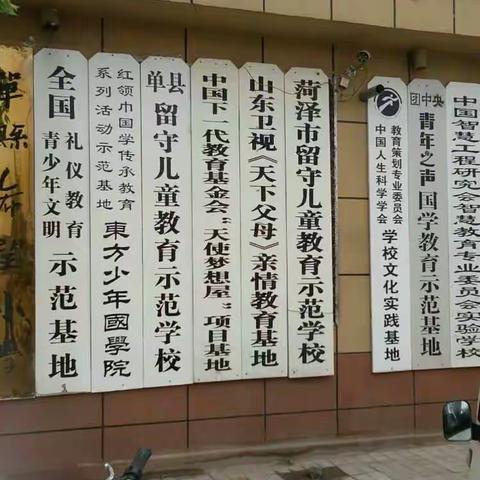 單縣
全国
青少年文明
礼仪教育
示范基地
系列活动示范基地
红领巾国学传承教育
東方少年國學院
单县
留守儿童教育示范学校
中国下一代教育基金会:“天使梦想屋”:项目基地
山东卫视《天下父母》亲情教育基地
菏泽市留守儿童教育示范学校
中国人生科学学会
教育策划专业委员会
学校文化实践基地
团中央
青年之声
国学教育示范基地
中国智慧工程研究会智慧教育专业委员会实验学校